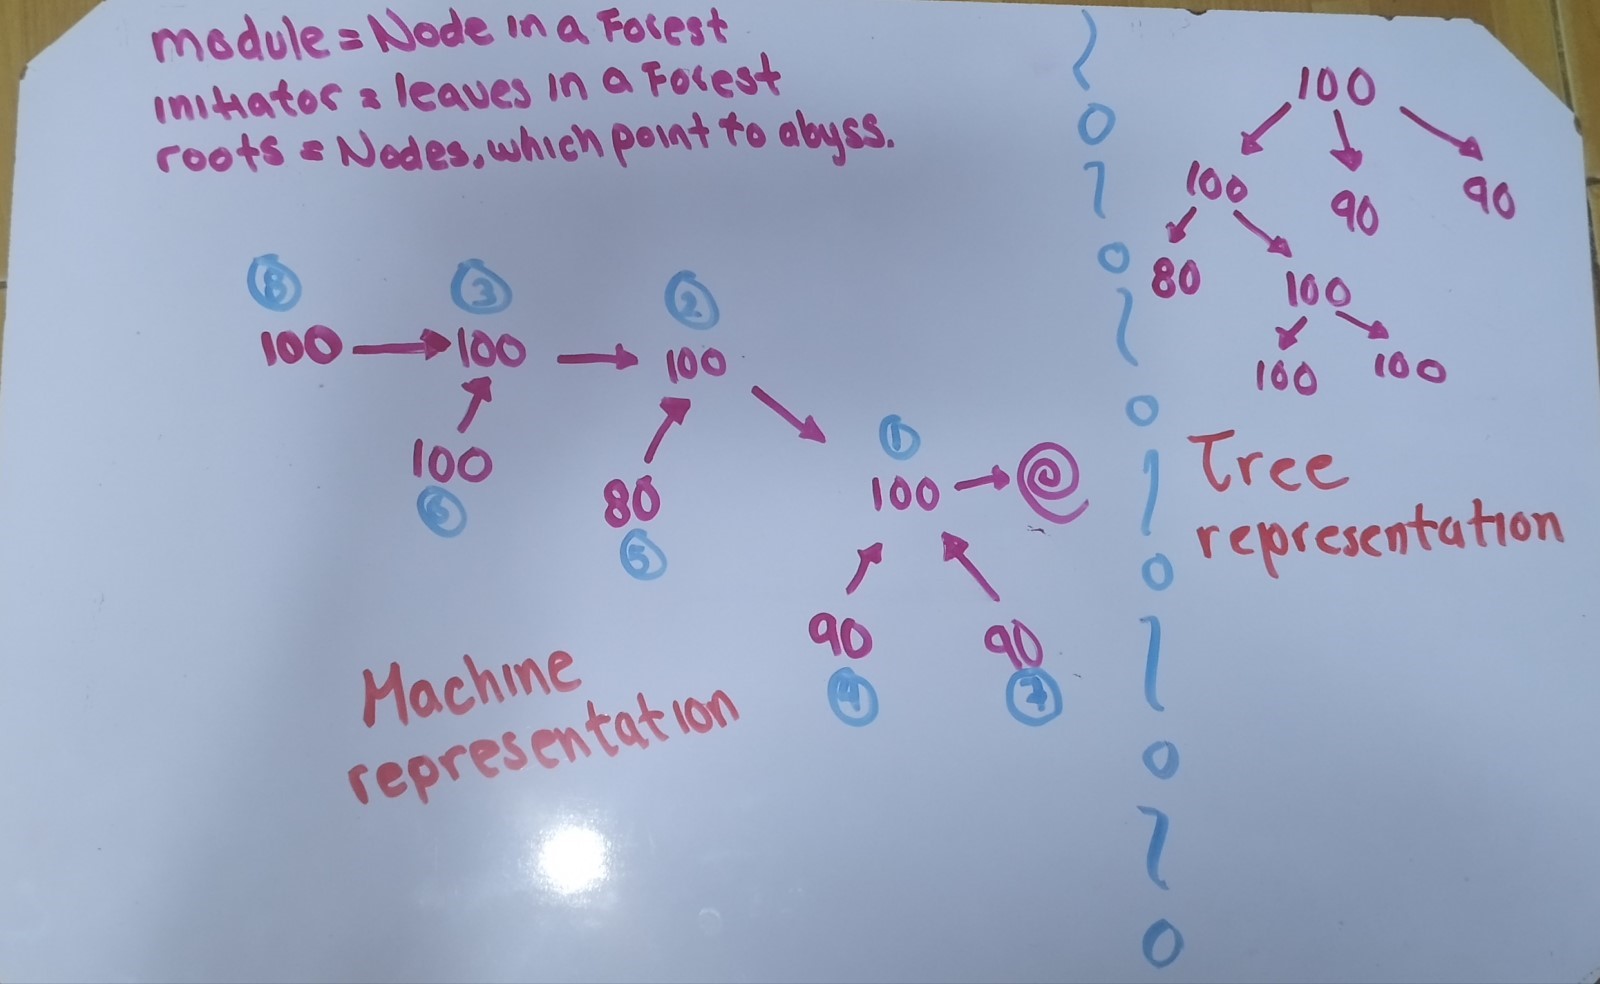 module = Node in a Forest
initiator = leaves in a Forest
roots = Nodes, which point to abyss.
8 3 2
100 100 100
100
80
5
1
100
90 90
4 7
Machine
representation
1
0
1
0
1
0
1
0
1
0
1
0
100
100 90 90
80 100
100 100
Tree
representation